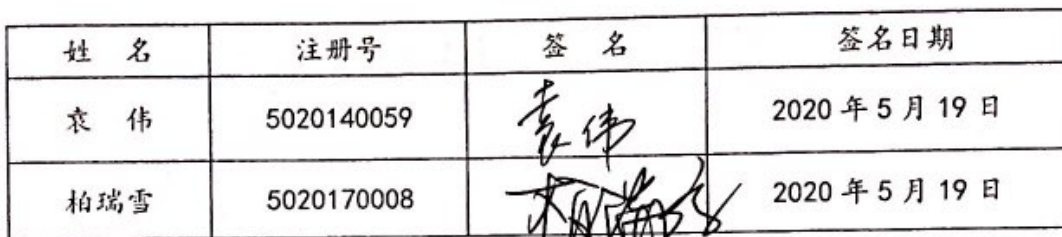 姓 名 注册号 签 名 签名日期
袁 伟 5020140059 袁伟 2020 年 5 月 19 日
柏瑞雪 5020170008 柏瑞雪 2020 年 5 月 19 日